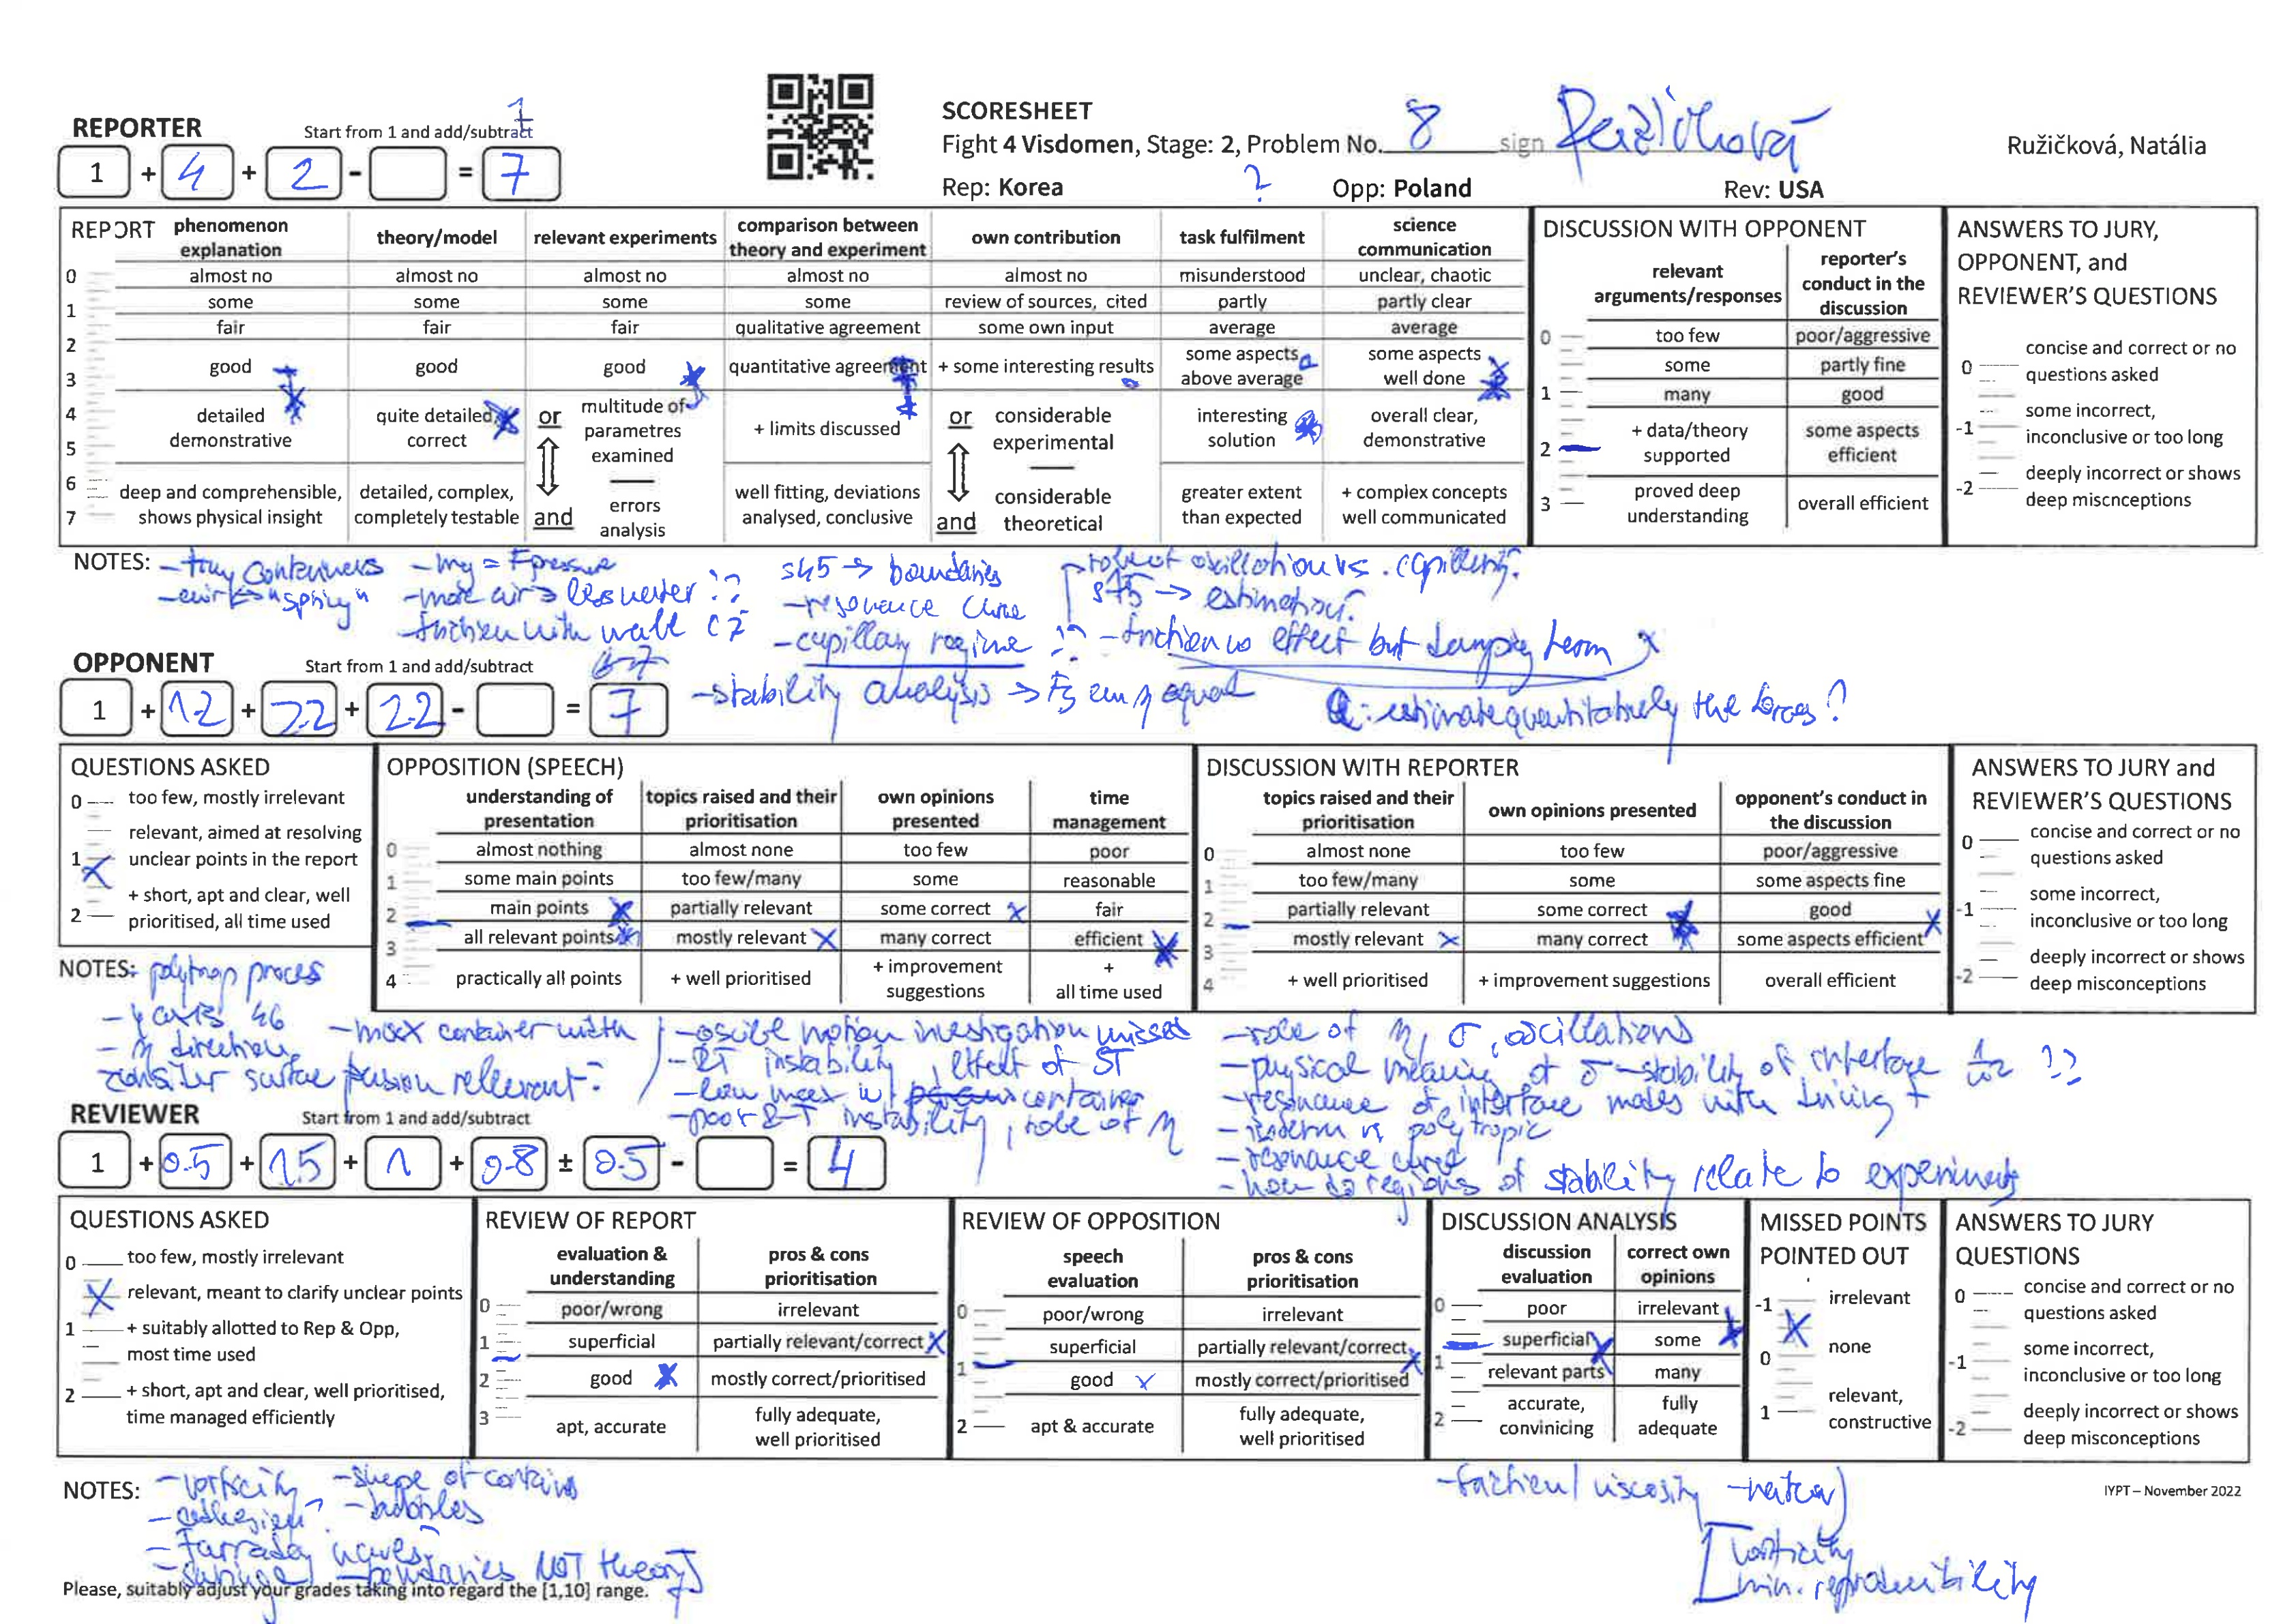 REPORTER Start from 1 and add/subtract
1 + 4 + 2 - = 7
SCORESHEET
Fight 4 Visdomen, Stage: 2, Problem No. 8 sign Ružičková
Ružičková, Natália
Rep: Korea ? Opp: Poland Rev: USA
REPORT
phenomenon explanation | theory/model | relevant experiments | comparison between theory and experiment | own contribution | task fulfilment | science communication
0 almost no | almost no | almost no | almost no | almost no | misunderstood | unclear, chaotic
1 some | some | some | some | review of sources, cited | partly | partly clear
2 fair | fair | fair | qualitative agreement | some own input | average | average
3 good | good | good | quantitative agreement | + some interesting results | some aspects above average | some aspects well done
4 5 detailed demonstrative | quite detailed, correct | or multitude of parametres examined | + limits discussed | or considerable experimental | interesting solution | overall clear, demonstrative
6 7 deep and comprehensible, shows physical insight | detailed, complex, completely testable | and errors analysis | well fitting, deviations analysed, conclusive | and considerable theoretical | greater extent than expected | + complex concepts well communicated
DISCUSSION WITH OPPONENT
relevant arguments/responses | reporter's conduct in the discussion
0 too few | poor/aggressive
some | partly fine
1 many | good
2 + data/theory supported | some aspects efficient
3 proved deep understanding | overall efficient
ANSWERS TO JURY, OPPONENT, and REVIEWER'S QUESTIONS
0 concise and correct or no questions asked
-1 some incorrect, inconclusive or too long
-2 deeply incorrect or shows deep miscnceptions
NOTES: - tiny containers
- air "spring"
- mg = Fpressure
- more air → less water
- friction with wall
s45 → boundaries
- resonance curve
- capillary regime
- stability analysis
oscillation vs. capillary
→ estimation?
- friction no effect but damping term
Q: estimate quantitatively the forces?
OPPONENT Start from 1 and add/subtract
1 + 1.2 + 2.2 + 2.2 - = 7
QUESTIONS ASKED
0 too few, mostly irrelevant
1 relevant, aimed at resolving unclear points in the report
2 + short, apt and clear, well prioritised, all time used
OPPOSITION (SPEECH)
understanding of presentation | topics raised and their prioritisation | own opinions presented | time management
0 almost nothing | almost none | too few | poor
1 some main points | too few/many | some | reasonable
2 main points | partially relevant | some correct | fair
3 all relevant points | mostly relevant | many correct | efficient
4 practically all points | + well prioritised | + improvement suggestions | + all time used
DISCUSSION WITH REPORTER
topics raised and their prioritisation | own opinions presented | opponent's conduct in the discussion
0 almost none | too few | poor/aggressive
1 too few/many | some | some aspects fine
2 partially relevant | some correct | good
3 mostly relevant | many correct | some aspects efficient
4 + well prioritised | + improvement suggestions | overall efficient
ANSWERS TO JURY and REVIEWER'S QUESTIONS
0 concise and correct or no questions asked
-1 some incorrect, inconclusive or too long
-2 deeply incorrect or shows deep misconceptions
NOTES: polytrop proces
- y axis 46
- η direction
- max container width
consider surface tension relevant?
motion investigation missed
- RT instability, effect of ST
- low mass w/ container
- poor R-T instability, role of η
- role of η, σ, oscillations
- physical meaning of σ - stability of interface
- resonance of interface modes with driving f
- isoterm vs polytropic
- resonance curve
- how do regions of stability relate to experiments
REVIEWER Start from 1 and add/subtract
1 + 0.5 + 1.5 + 1 + 0.8 ± 0.5 - = 4
QUESTIONS ASKED
0 too few, mostly irrelevant
relevant, meant to clarify unclear points
1 + suitably allotted to Rep & Opp, most time used
2 + short, apt and clear, well prioritised, time managed efficiently
REVIEW OF REPORT
evaluation & understanding | pros & cons prioritisation
0 poor/wrong | irrelevant
1 superficial | partially relevant/correct
2 good | mostly correct/prioritised
3 apt, accurate | fully adequate, well prioritised
REVIEW OF OPPOSITION
speech evaluation | pros & cons prioritisation
0 poor/wrong | irrelevant
superficial | partially relevant/correct
1 good | mostly correct/prioritised
2 apt & accurate | fully adequate, well prioritised
DISCUSSION ANALYSIS
discussion evaluation | correct own opinions
0 poor | irrelevant
superficial | some
1 relevant parts | many
2 accurate, convinicing | fully adequate
MISSED POINTS POINTED OUT
-1 irrelevant
0 none
1 relevant, constructive
ANSWERS TO JURY QUESTIONS
0 concise and correct or no questions asked
-1 some incorrect, inconclusive or too long
-2 deeply incorrect or shows deep misconceptions
NOTES: - vorticity - shape of container
- adhesion? - bubbles
- Farraday waves
- boundaries NOT theory
- friction/viscosity
vorticity
min. reproducibility
IYPT – November 2022
Please, suitably adjust your grades taking into regard the [1,10] range.